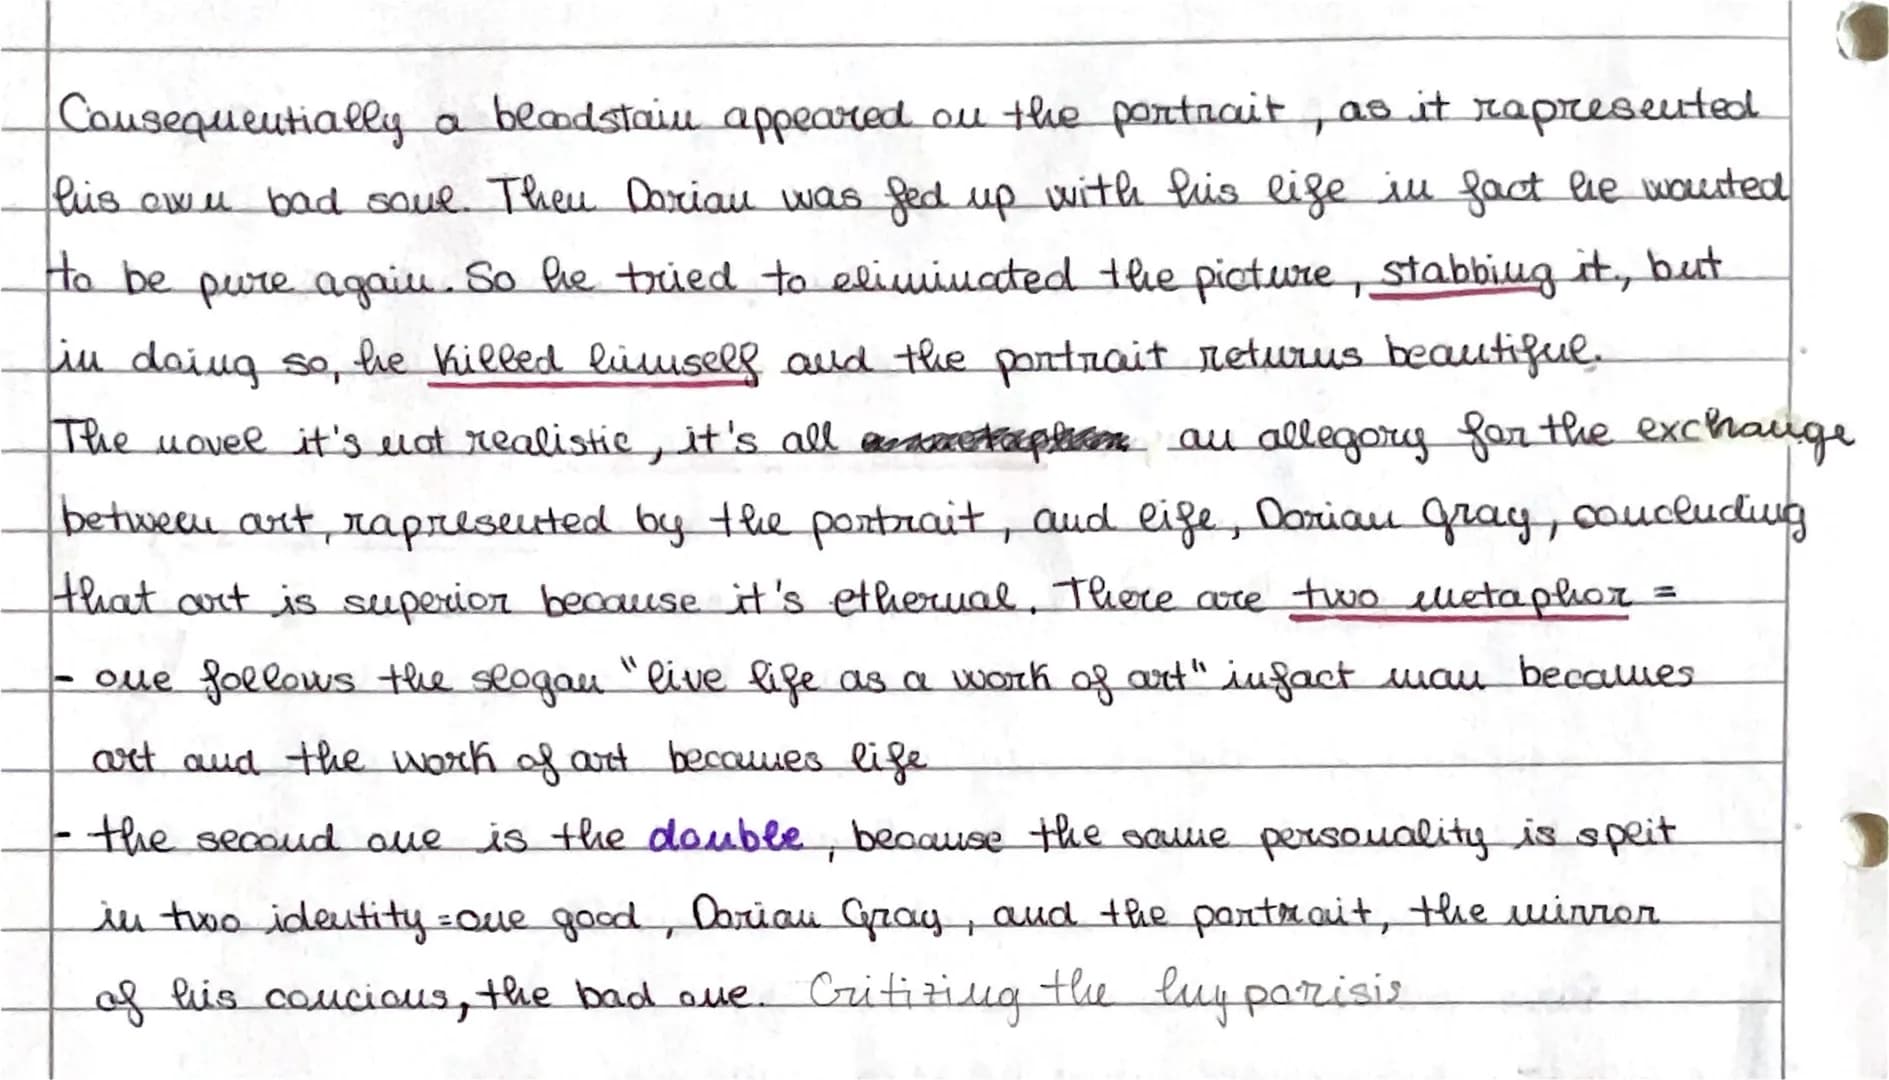 Consequentially a bloodstain appeared on the portrait, as it rapresented
his own bad soul. Then Dorian was fed up with his life in fact he wanted
to be pure again. So he tried to eliminated the picture, stabbing it, but
in doing so, he killed himself and the portrait returns beautiful.
The novel it's not realistic, it's all an allegory for the exchange
between art, rapresented by the portrait, and life, Dorian Gray, concluding
that art is superior because it's ethernal. There are two metaphor =
- one follows the slogan "live life as a work of art" infact man becames
art and the work of art becames life
- the second one is the double, because the same personality is split
in two identity = one good, Dorian Gray, and the portrait, the mirror
of his concious, the bad one. Critizing the hyporisis